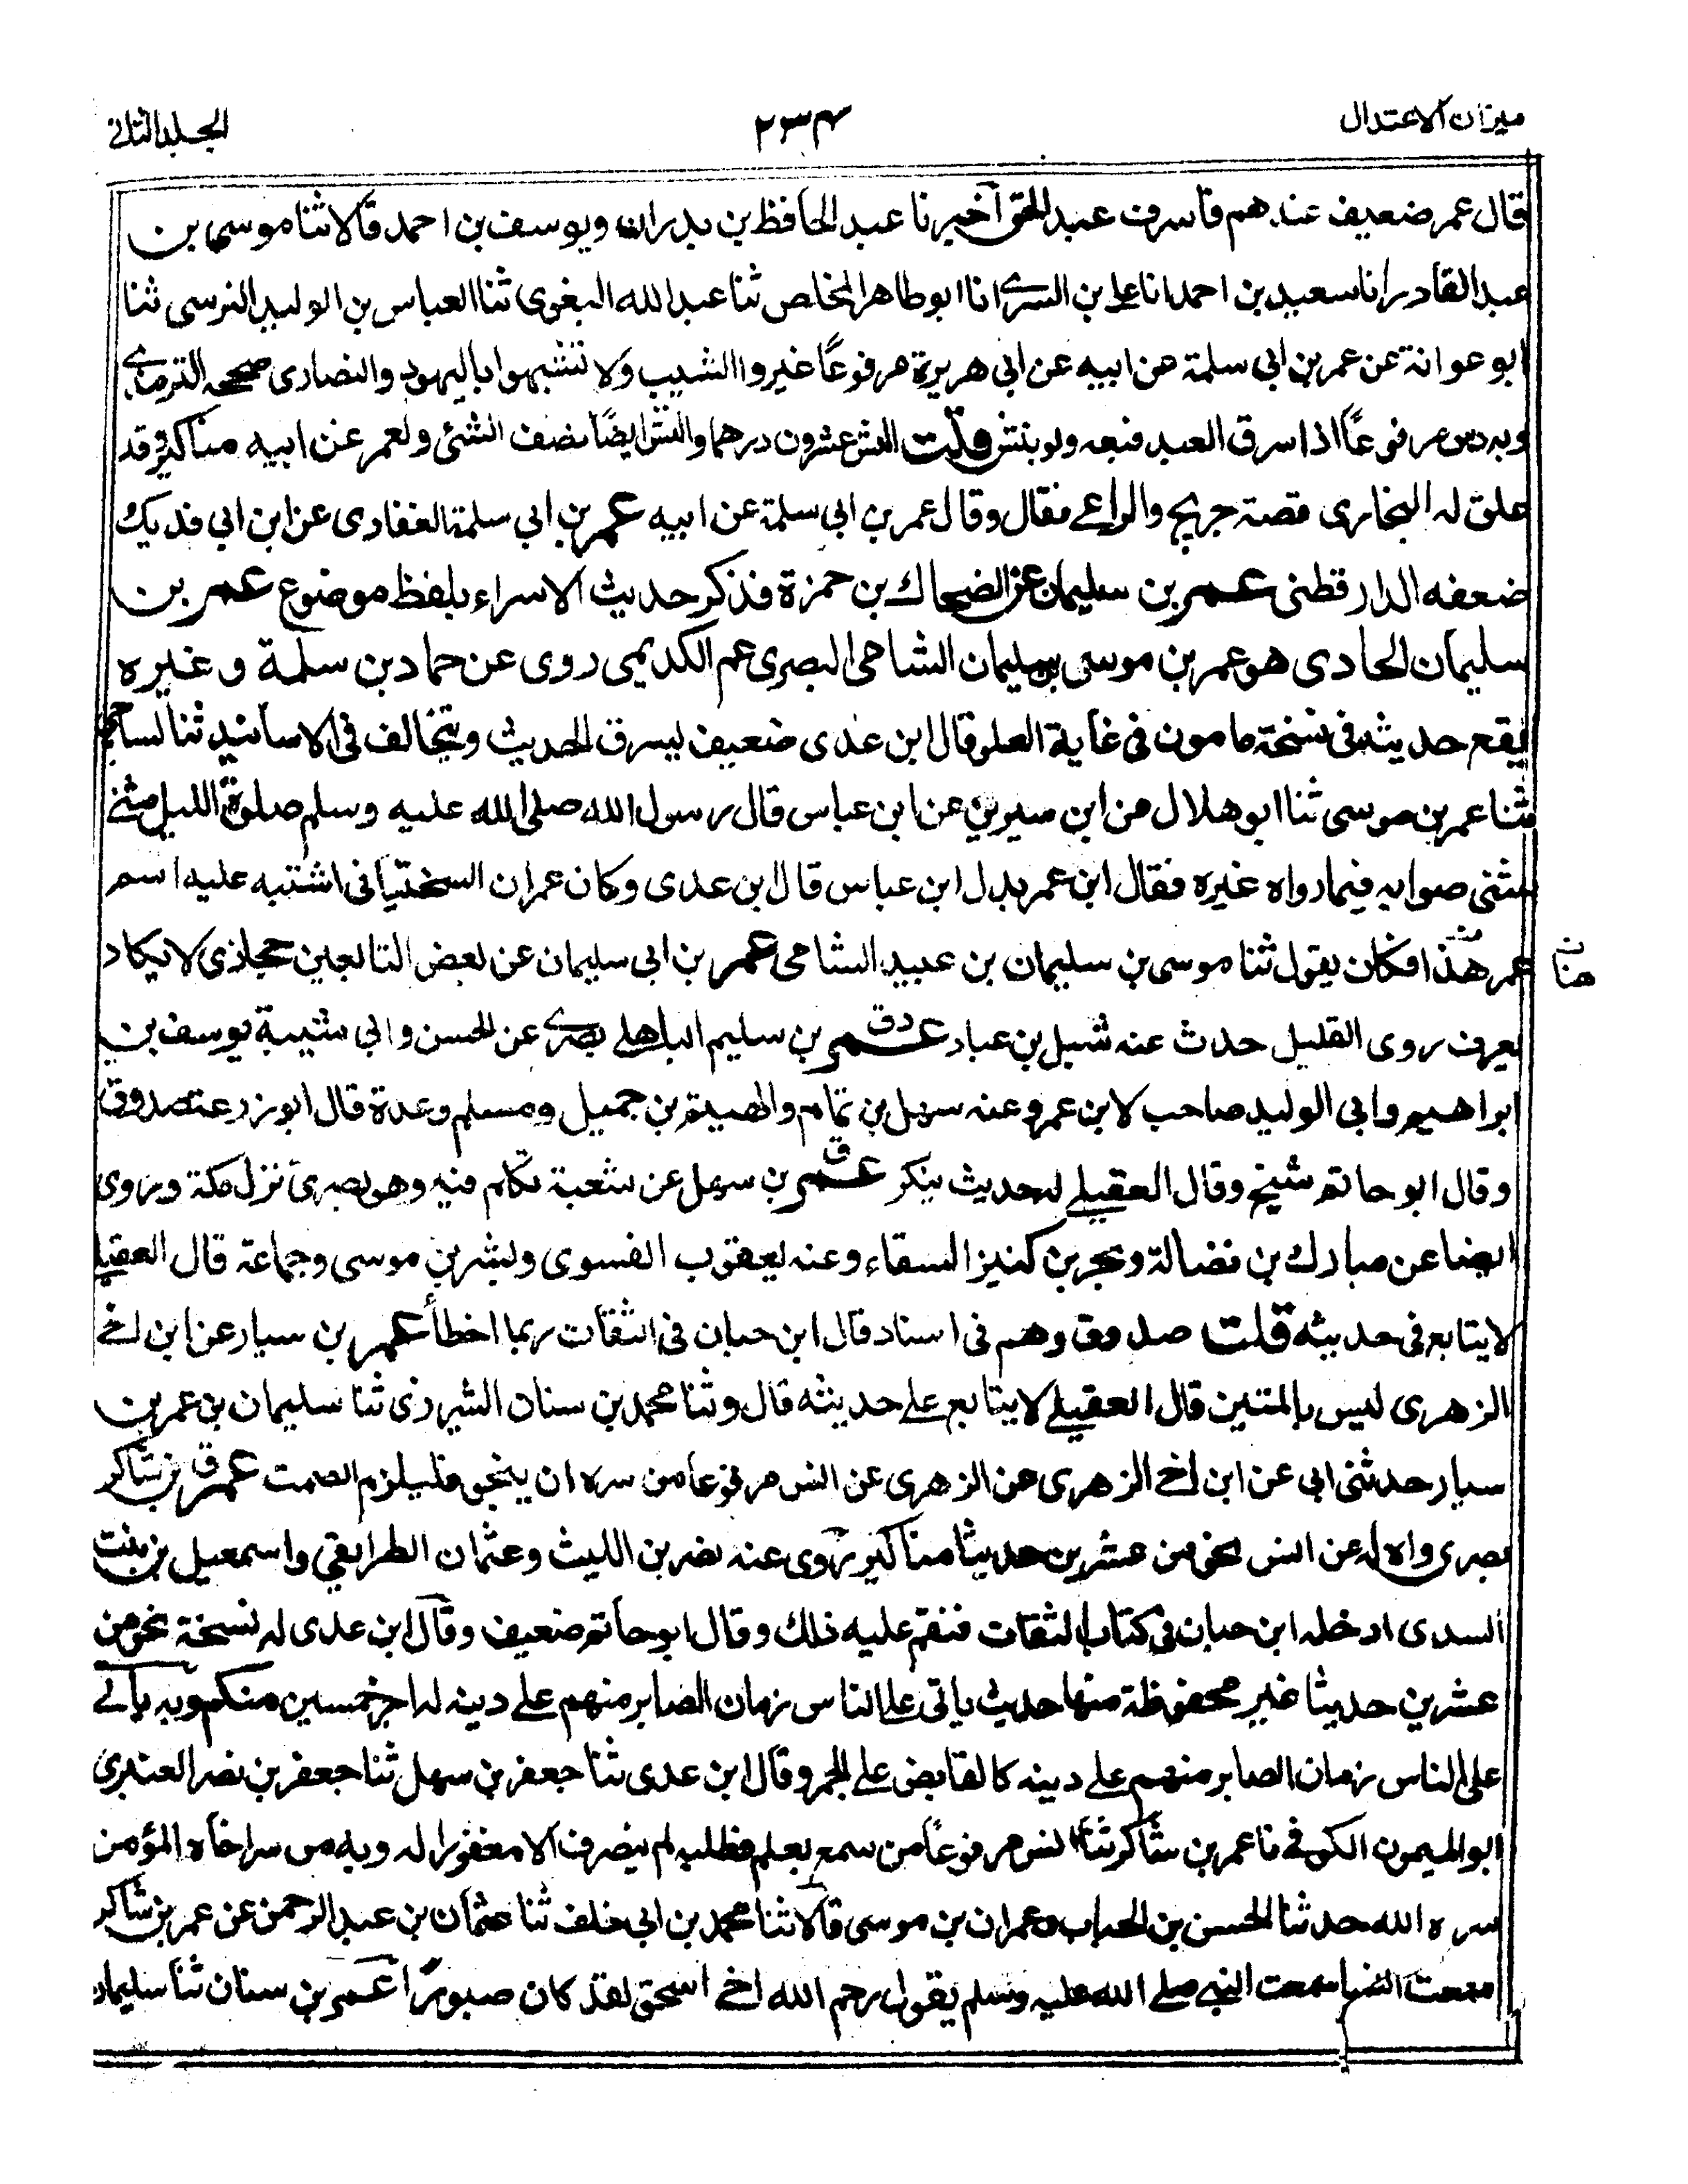 ميزان الاعتدال
٢٣٤
المجلد الثاني
قال عمر ضعيف عندهم فاسرف عبد الحق اخبرنا عبد الحافظ بن بدران ويوسف بن احمد قالا ثنا موسى بن
عبد القادر انا سعيد بن احمد انا علي بن السري انا ابو طاهر المخلص ثنا عبد الله البغوى ثنا العباس بن الوليد النرسى ثنا
ابو عوانة عن عمر بن ابي سلمة عن ابيه عن ابي هريرة مرفوعاً غيروا الشيب ولا تتشبهوا باليهود والنصارى صححه الترمذي
وبه مرفوعاً اذا سرق العبد فبعه ولو بنش قلت النش عشرون درهما والنش ايضاً نصف الشئ ولعمر عن ابيه مناكير وقد
علق له البخارى قصة جريج والراعي فقال وقال عمر بن ابي سلمة عن ابيه عمر بن ابي سلمة الغفارى عن ابن ابي فديك
ضعفه الدارقطنى عمر بن سليمان عن الضحاك بن حمزة فذكر حديث الاسراء بلفظ موضوع عمر بن
سليمان الحادى هو عمر بن موسى بن سليمان الشامى البصرى عم الكديمى روى عن حماد بن سلمة و غيره
يقع حديثه فى نسخة مامون فى غاية العلو قال ابن عدى ضعيف يسرق الحديث ويخالف فى الاسانيد ثنا الساجى
ثنا عمر بن موسى ثنا ابو هلال عن ابن سيرين عن ابن عباس قال رسول الله صلى الله عليه وسلم صلوة الليل مثنى
مثنى صوابه فيما رواه غيره فقال ابن عمر بدل ابن عباس قال ابن عدى وكان عمران السختيانى اشتبه عليه اسم
عمر هذا فكان يقول ثنا موسى بن سليمان بن عبيد الشامى عمر بن ابى سليمان عن بعض التابعين حجازى لا يكاد
هنا ن
يعرف روى القليل حدث عنه شبل بن عباد عمر دق بن سليم الباهلي بصري عن الحسن وابي شيبة يوسف بن
ابراهيم وابى الوليد صاحب لابن عمر وعنه سهل بن تمام والهيثم بن جميل ومسلم وعدة قال ابو زرعة صدوق
وقال ابو حاتم شيخ وقال العقيلي له حديث ينكر عمر ق بن سهل عن شعبة تكلم فيه وهو بصرى نزل مكة وروى
ايضا عن مبارك بن فضالة وبحر بن كنيز السقاء وعنه يعقوب الفسوى وبشر بن موسى وجماعة قال العقيلي
لا يتابع فى حديثه قلت صدوق وهم فى اسناد قال ابن حبان فى الثقات ربما اخطأ عمر بن سيار عن ابن اخي
الزهرى ليس بالمتين قال العقيلي لا يتابع علي حديثه قال وثنا محمد بن سنان الشيرزى ثنا سليمان بن عمر بن
سيار حدثنى ابى عن ابن اخي الزهرى عن الزهرى عن انس مرفوعا من سره ان ينجو فليلزم الصمت عمر ق بن شاكر
بصرى واه له عن انس نحو من عشرين حديثا مناكير روى عنه نصر بن الليث وعثمان الطرايقي واسمعيل بن بنت
السدى ادخله ابن حبان فى كتاب الثقات فنقم عليه ذلك وقال ابو حاتم ضعيف وقال ابن عدى له نسخة نحو من
عشرين حديثا غير محفوظة منها حديث ياتى على الناس زمان الصابر منهم على دينه له اجر خمسين منكم وبه ياتي
على الناس زمان الصابر منهم علي دينه كالقابض علي الجمر وقال ابن عدى ثنا جعفر بن سهل ثنا جعفر بن نصر العنبرى
ابو الميمون الكوفي نا عمر بن شاكر ثنا انس مرفوعاً من سمع بعلم فطلبه لم ينصرف الا مغفورا له وبه من سر اخاه المؤمن
سره الله حدثنا الحسن بن الحباب وعمران بن موسى قالا ثنا محمد بن ابى خلف ثنا عثمان بن عبد الرحمن عن عمر بن شاكر
سمعت انسا سمعت النبي صلي الله عليه وسلم يقول رحم الله اخي اسحق لقد كان صبورا عمر بن سنان ثنا سليمان